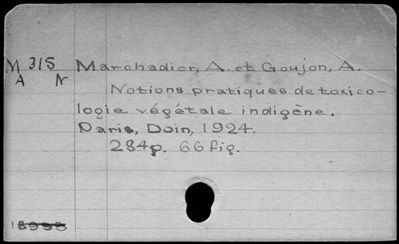 M 315 Marchadier, A. et Goujon, A.
A N Notions pratiques de toxico-
logie végétale indigène.
Paris, Doin, 1924.
284p. 66 fig.